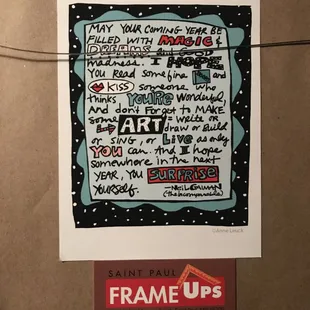 MAY YOUR COMING YEAR BE
FILLED WITH MAGIC &
DREAMS AND GOOD
madness. I HOPE
YOU Read some fine and
KISS someone who
thinks YOU'RE wonderful,
And don't Forget to MAKE
Some ART = write or
draw or Build
or SING, or LIVE as only
YOU can. And I hope
somewhere in the next
YEAR, YOU SURPRISE
YOURSELF. —NEIL GAIMAN
(the incomparable)
SAINT PAUL
FRAME UPS